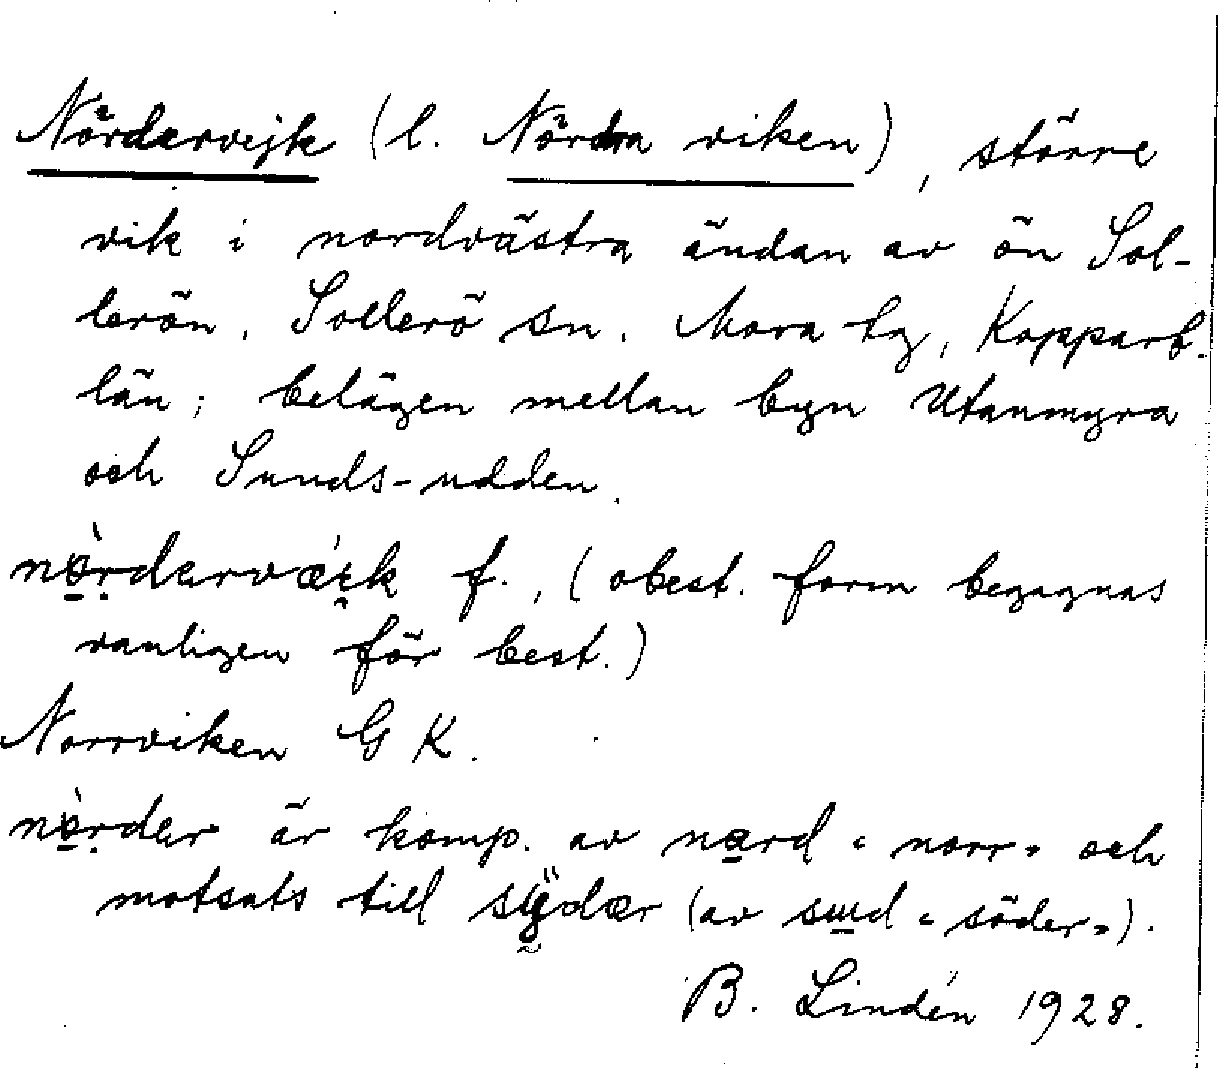 Nördervejk (l. Nördra viken), större
vik i nordvästra ändan av ön Sol-
lerön, Sollerö sn, Mora tg, Kopparb.
län; belägen mellan byn Utanmyra
och Sunds-udden.
nòrdervæik f., (obest. form begagnas
vanligen för best.)
Norrviken GK.
nòrder är komp. av nord "norr" och
motsats till sÿdær (av sɯd "söder").
B. Lindén 1928.